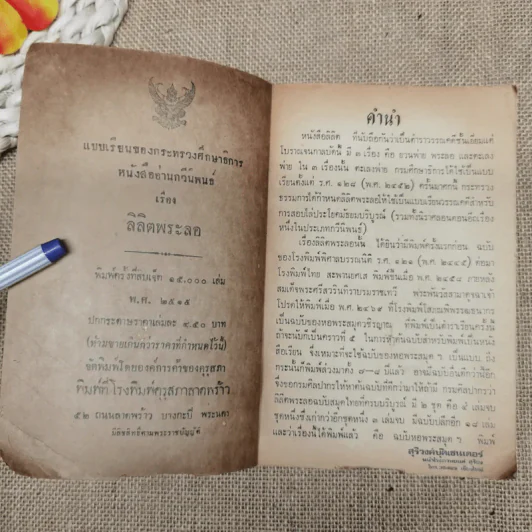 แบบเรียนของกระทรวงศึกษาธิการ
หนังสืออ่านกวีนิพนธ์
เรื่อง
ลิลิตพระลอ
พิมพ์ครั้งที่สิบเจ็ด ๑๕,๐๐๐ เล่ม
พ.ศ. ๒๕๑๕
ปกกระดาษราคาเล่มละ ๔.๕๐ บาท
(ห้ามขายเกินกว่าราคาที่กำหนดไว้นี้)
จัดพิมพ์โดยองค์การค้าของคุรุสภา
พิมพ์ที่โรงพิมพ์คุรุสภาลาดพร้าว
๕๒ ถนนลาดพร้าว บางกะปิ พระนคร
มีลิขสิทธิ์ตามพระราชบัญญัติ
คำนำ
หนังสือลิลิต ที่นับถือกันว่าเป็นตำราวรรณคดีชั้นเยี่ยมแต่
โบราณจนกาลบัดนี้ มี ๓ เรื่อง คือ ยวนพ่าย พระลอ และตะเลง
พ่าย ใน ๓ เรื่องนั้น ตะเลงพ่าย กรมศึกษาธิการได้ใช้เป็นแบบ
เรียนตั้งแต่ ร.ศ. ๑๒๘ (พ.ศ. ๒๔๕๒) ครั้นมาศกนี้ กระทรวง
ธรรมการได้กำหนดลิลิตพระลอให้ใช้เป็นแบบเรียนวรรณคดีสำหรับ
การสอบไล่ประโยคมัธยมบริบูรณ์ (รวมทั้งนิราศลอนดอนอีกเรื่อง
หนึ่งในประเภทกวีนิพนธ์)
เรื่องลิลิตพระลอนั้น ได้ยินว่ามีพิมพ์ครั้งแรกก่อน ฉบับ
ของโรงพิมพ์พิศาลบรรณนิติ์ ร.ศ. ๑๒๑ (พ.ศ. ๒๔๔๕) ต่อมา
โรงพิมพ์ไทย สะพานยศเส พิมพ์ขึ้นเมื่อ พ.ศ. ๒๔๕๘ ภายหลัง
สมเด็จพระศรีสวรินทิราบรมราชเทวี พระพันวัสสามาตุจฉาเจ้า
โปรดให้พิมพ์เมื่อ พ.ศ. ๒๔๖๙ ที่โรงพิมพ์โสภณพิพรรฒธนากร
เป็นฉบับของหอพระสมุดวชิรญาณ ที่พิมพ์เป็นตำราเรียนครั้งนี้
ถ้าจะนับก็เป็นคราวที่ ๕ ในการหาต้นฉบับสำหรับพิมพ์เป็นหนัง
สือเรียน จึงเหมาะที่จะใช้ฉบับของหอพระสมุด ฯ เป็นแบบ ถึง
กระนั้นก็พิมพ์ล่วงมาตั้ง ๗—๘ ปีแล้ว
จึงขอกรมศิลปากรให้หาต้นฉบับที่ดีกว่ามาให้อ่านอีก กรมศิลปากรว่า
ลิลิตพระลอฉบับสมุดไทยครบบริบูรณ์ มี ๒ ชุด คือ ๔ เล่มจบ
ชุดหนึ่งซึ่งเก่ากว่าอีกชุดหนึ่ง ๓ เล่มจบ มีฉบับปลีกอีก ๑๘ เล่ม
และว่าเรื่องนี้ได้พิมพ์แล้ว คือ ฉบับหอพระสมุด ฯ พิมพ์